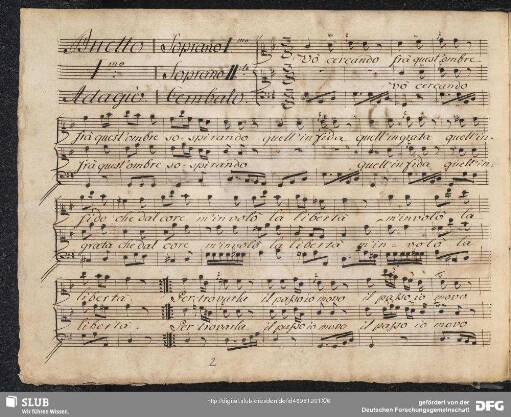 Duetto Soprano I mo
Vò cercando frà quest'ombre
I mo Soprano II do
vò cercando
Adagio Cembalo.
frà quest'ombre so-spirando quell'infida quell'ingrata quell'in-
frà quest'ombre so-spirando quell'infida quell'in-
fida che dal core m'involò la libertà m'involò la
grata che dal core m'involò la libertà m'in-volò la
libertà Per trovarla il passo io movo il passo io movo
libertà. Per trovarla il passo io movo il passo io movo
2
SLUB
Wir führen Wissen.
gefördert von der
Deutschen Forschungsgemeinschaft
DFG